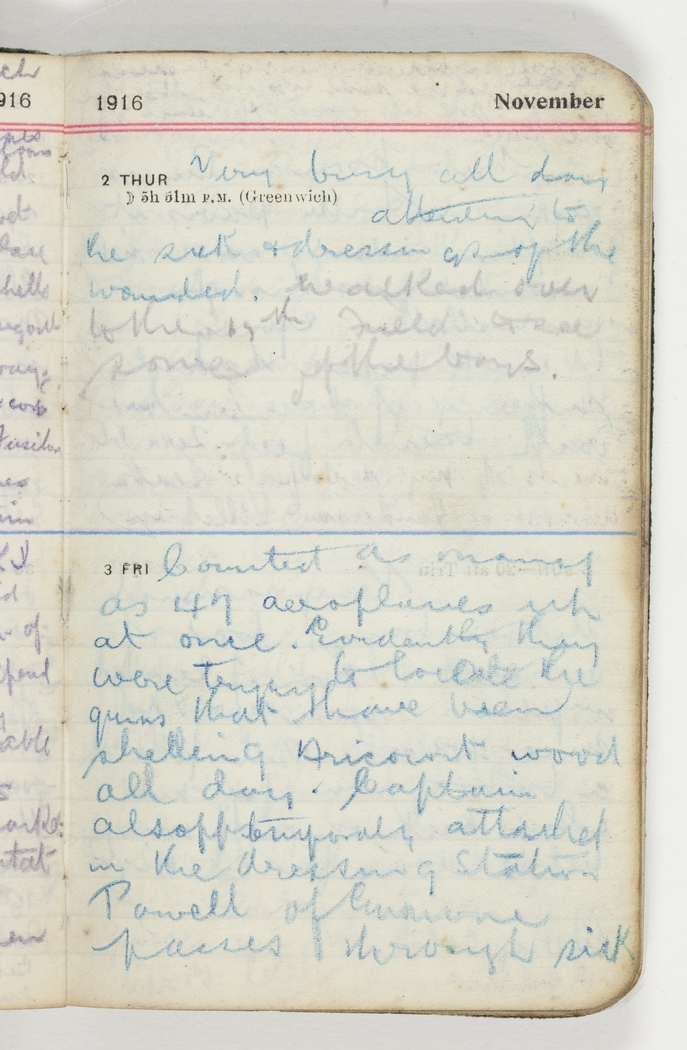 1916 November
2 THUR Very busy all day
☽ 5h 51m P.M. (Greenwich)
attending to
the sick & dressings of the
wounded. walked over
to the 15th Field & see
some of the boys.
3 FRI Counted as many
as 47 aeroplanes up
at once. Evidently they
were trying to locate the
guns that have been
shelling wood
all day. Captain
also temporaly attached
in the dressing Station
Powell of
passes through sick